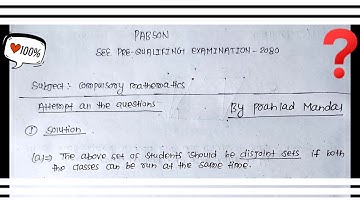 100%
PABSON
SEE PRE-QUALIFYING EXAMINATION - 2080
Subject:- Compulsory mathematics
Attempt all the questions
By Prahlad Mandal
① Solution
(a)⇒ The above set of students should be disjoint sets if both
the classes can be run at the same time.